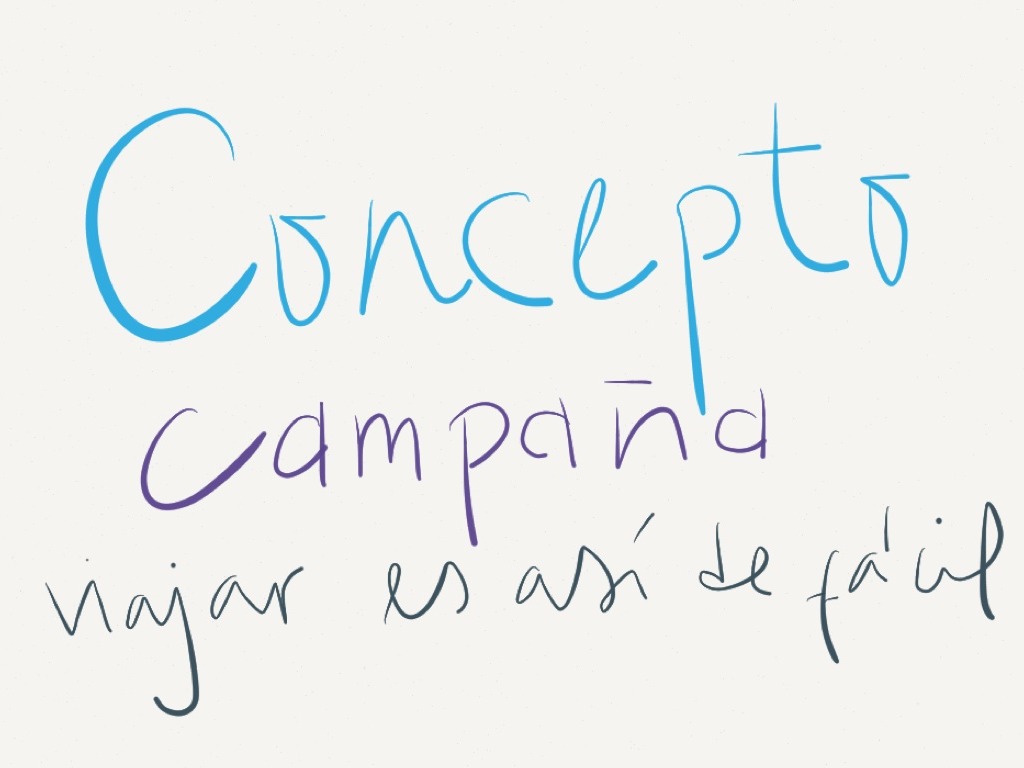 Concepto
campaña
viajar es así de fácil